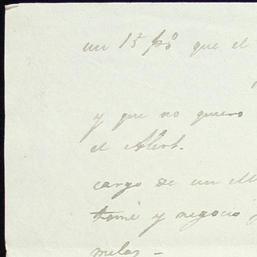 un 15 po que el
y que no quiero
el Abort.
cargo de un M
tomé y negocio
melas -